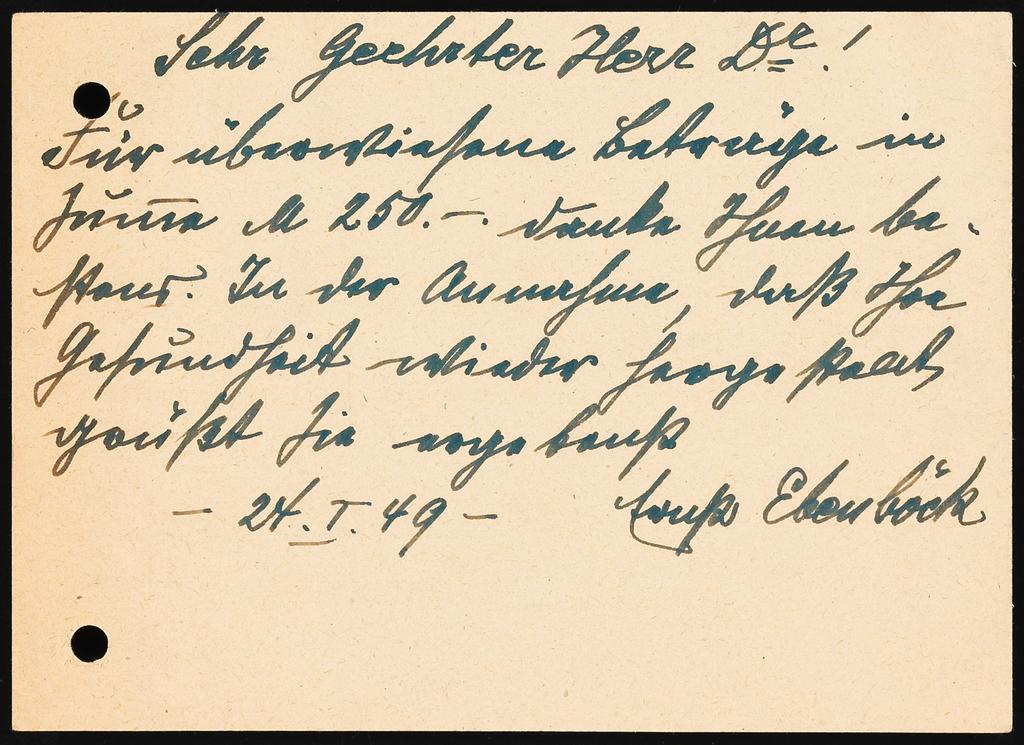 Sehr Geehrter Herr Dr.!
Für überwiesene Beträge in
Summe M 250.-. danke Ihnen be-
stens. In der Annahme, daß Ihre
Gesundheit wieder hergestellt,
grüßt Sie ergebenst
- 24. I. 49 - Ernst Ebenböck